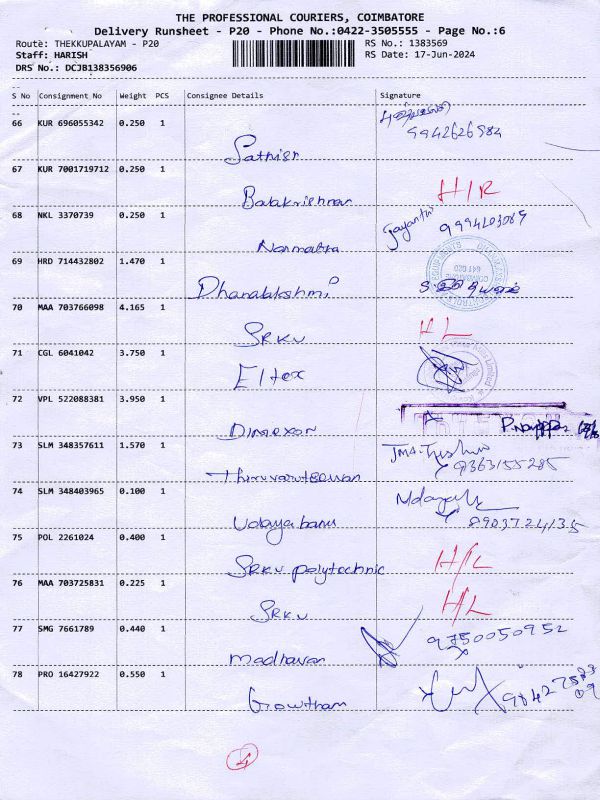 THE PROFESSIONAL COURIERS, COIMBATORE
Delivery Runsheet - P20 - Phone No.:0422-3505555 - Page No.:6
Route: THEKKUPALAYAM - P20 RS No.: 1383569
Staff: HARISH RS Date: 17-Jun-2024
DRS No.: DCJB138356906
S No Consignment No Weight PCS Consignee Details Signature
66 KUR 696055342 0.250 1
9942626984
Sathish
67 KUR 7001719712 0.250 1
Balakrishnan H/R
68 NKL 3370739 0.250 1 Jayanthi 9994203089
Narmatha
69 HRD 714432802 1.470 1
Dhanalakshmi
70 MAA 703766098 4.165 1
SRKV HL
71 CGL 6041042 3.750 1
Eltex
72 VPL 522088381 3.950 1
Dimexon
73 SLM 348357611 1.570 1
9363155285
74 SLM 348403965 0.100 1
Udayabanu 8903724135
75 POL 2261024 0.400 1
SRKV polytechnic H/L
76 MAA 703725831 0.225 1
SRKV H/L
77 SMG 7661789 0.440 1 9750050952
Madhavan
78 PRO 16427922 0.550 1
Gowtham
4